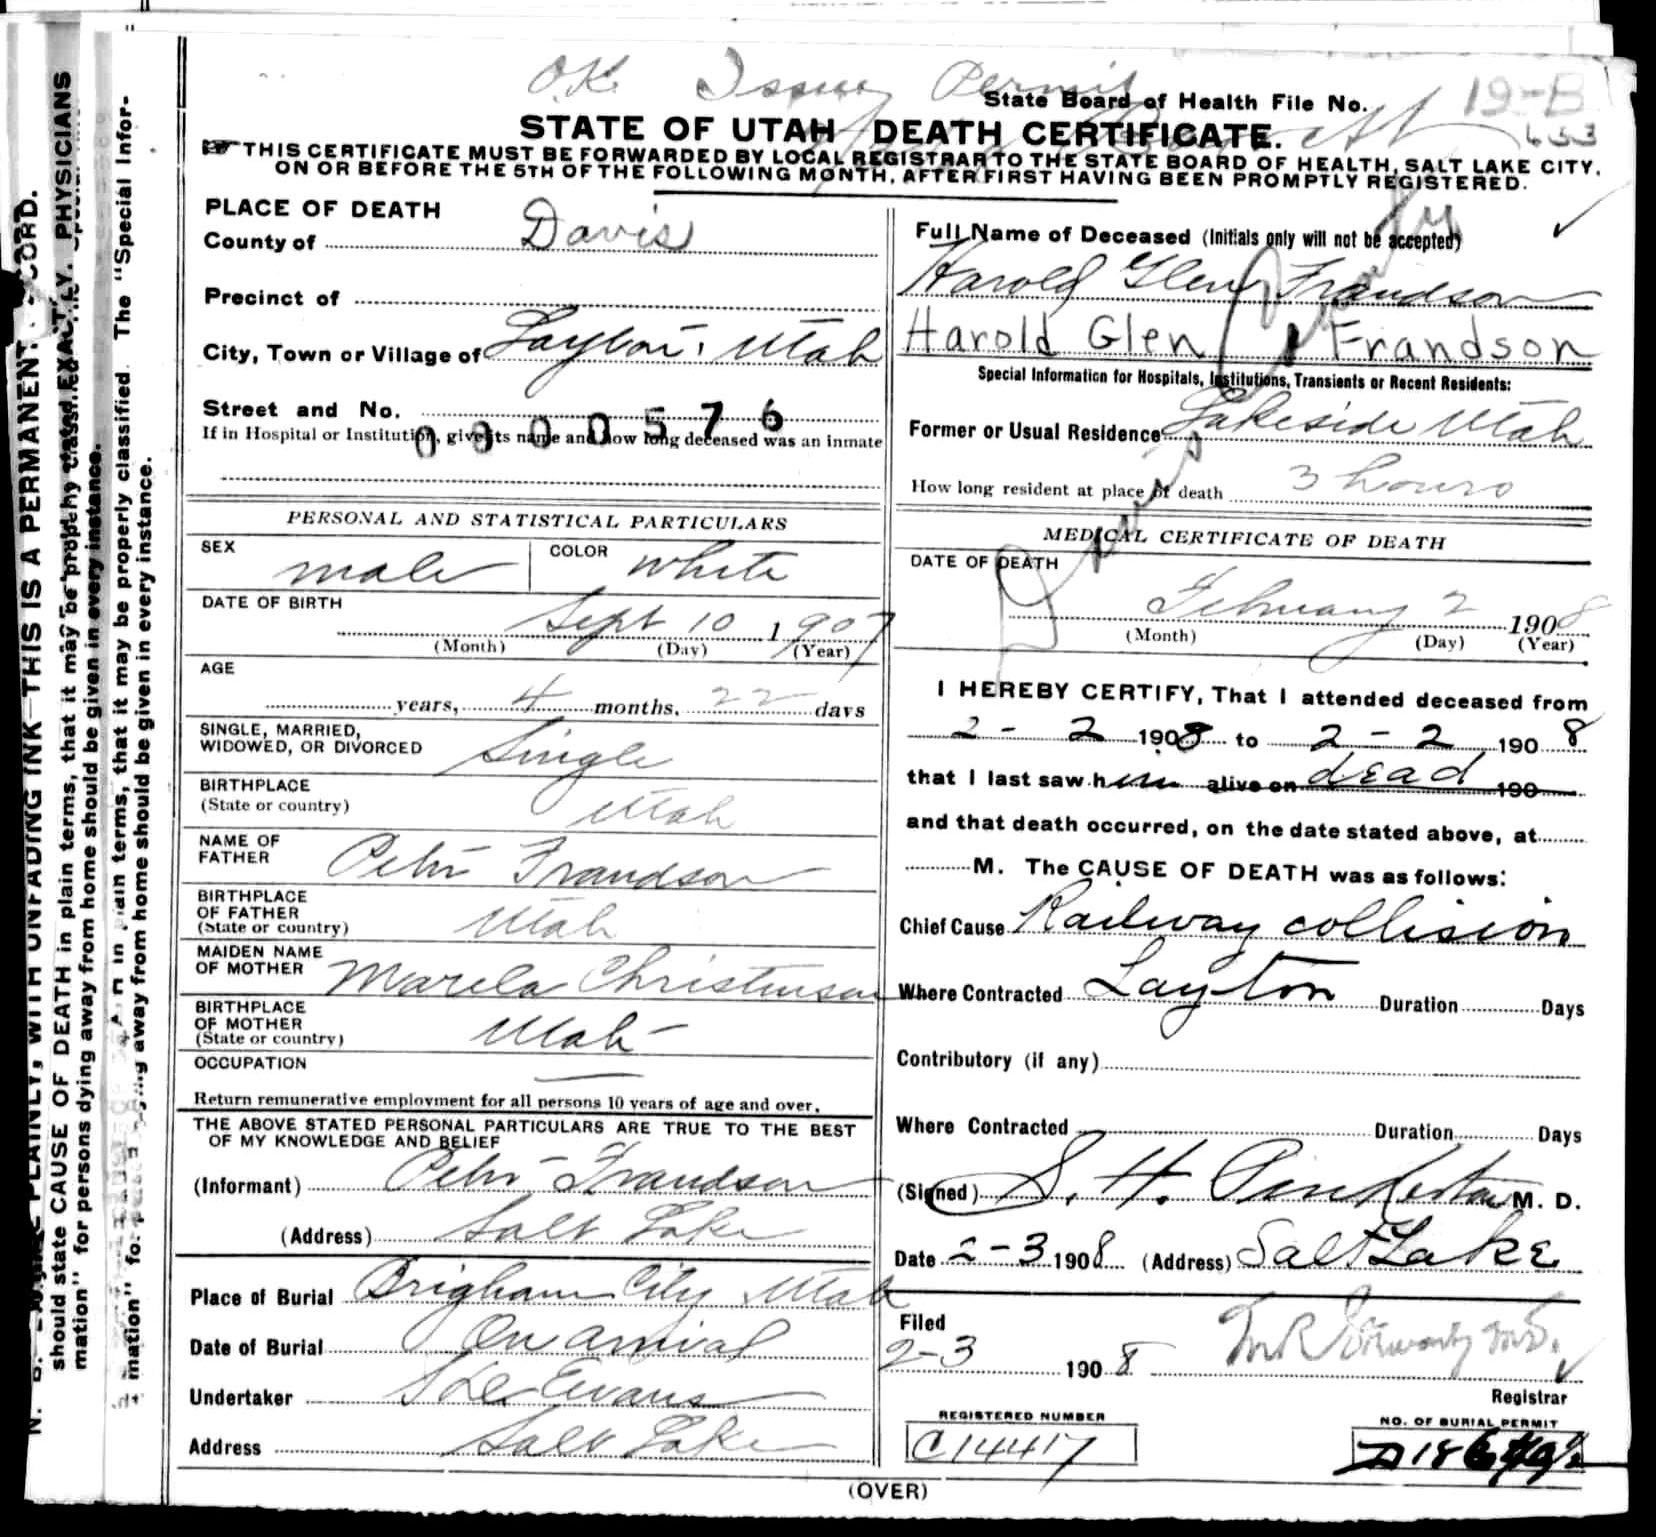 O.K. Issue Permit
State Board of Health File No.
19-B
653
STATE OF UTAH DEATH CERTIFICATE.
THIS CERTIFICATE MUST BE FORWARDED BY LOCAL REGISTRAR TO THE STATE BOARD OF HEALTH, SALT LAKE CITY,
ON OR BEFORE THE 5TH OF THE FOLLOWING MONTH, AFTER FIRST HAVING BEEN PROMPTLY REGISTERED.
PLACE OF DEATH
County of Davis
Precinct of
City, Town or Village of Layton, Utah
Street and No.
000576
If in Hospital or Institution, give its name and how long deceased was an inmate
PERSONAL AND STATISTICAL PARTICULARS
SEX male COLOR white
DATE OF BIRTH
Sept 10 1907
(Month) (Day) (Year)
AGE
years, 4 months, 22 days
SINGLE, MARRIED,
WIDOWED, OR DIVORCED Single
BIRTHPLACE
(State or country) Utah
NAME OF
FATHER Peter Frandson
BIRTHPLACE
OF FATHER
(State or country) Utah
MAIDEN NAME
OF MOTHER Marela Christensen
BIRTHPLACE
OF MOTHER
(State or country) Utah
OCCUPATION —
Return remunerative employment for all persons 10 years of age and over.
THE ABOVE STATED PERSONAL PARTICULARS ARE TRUE TO THE BEST
OF MY KNOWLEDGE AND BELIEF
(Informant) Peter Frandson
(Address) Salt Lake
Place of Burial Brigham City Utah
Date of Burial On arrival
Undertaker Evans
Address Salt Lake
Full Name of Deceased (Initials only will not be accepted)
Harold Glen Frandson
Harold Glen Frandson
Special Information for Hospitals, Institutions, Transients or Recent Residents:
Former or Usual Residence Lakeside Utah
How long resident at place of death 3 hours
MEDICAL CERTIFICATE OF DEATH
DATE OF DEATH
February 2 1908
(Month) (Day) (Year)
I HEREBY CERTIFY, That I attended deceased from
2 - 2 1908 to 2 - 2, 1908
that I last saw him alive on dead 190
and that death occurred, on the date stated above, at
M. The CAUSE OF DEATH was as follows:
Chief Cause Railway collision
Where Contracted Layton Duration Days
Contributory (if any)
Where Contracted Duration Days
(Signed) S. H. Pinkerton M. D.
Date 2-3 1908 (Address) Salt Lake
Filed
2-3 1908
Registrar
REGISTERED NUMBER
C14417
NO. OF BURIAL PERMIT
(OVER)
should state CAUSE OF DEATH in plain terms, that it may be properly classified. The "Special Infor-
mation" for persons dying away from home should be given in every instance.